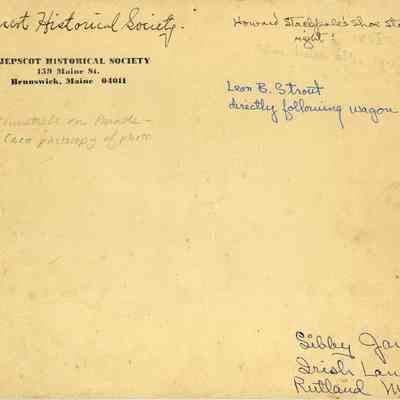 Historical Society.
JEPSCOT HISTORICAL SOCIETY
159 Maine St.
Brunswick, Maine 04011
on Parade -
of photo
Howard Stackpole's Shoe St
right ↑
Leon B. Strout
directly following wagon
Sibby Ja
Irish Lan
Rutland M